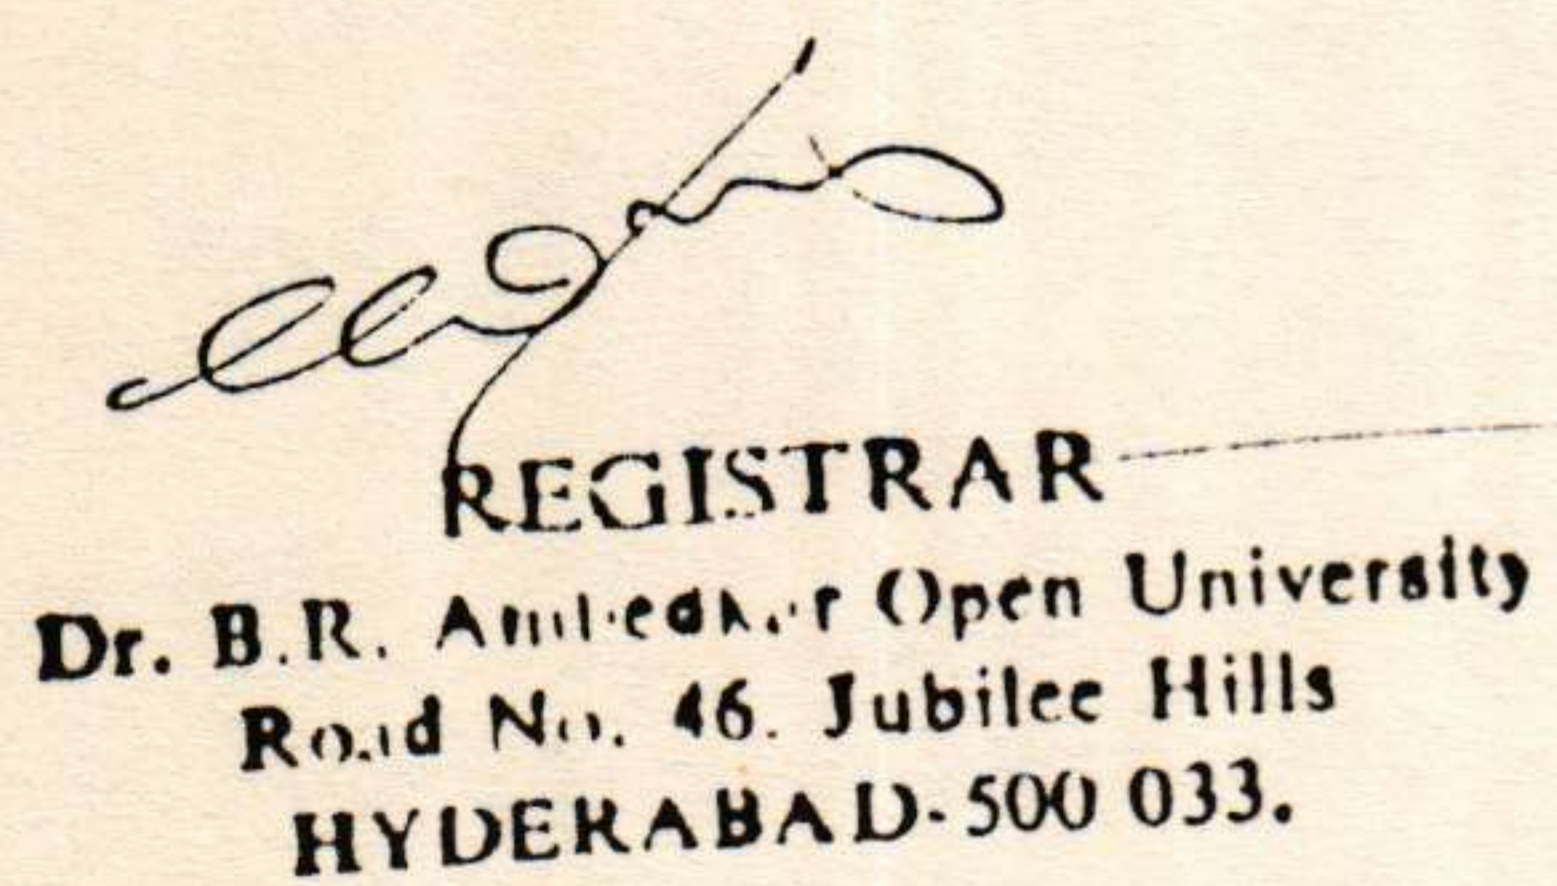 REGISTRAR
Dr. B.R. Ambedkar Open University
Road No. 46. Jubilee Hills
HYDERABAD-500 033.